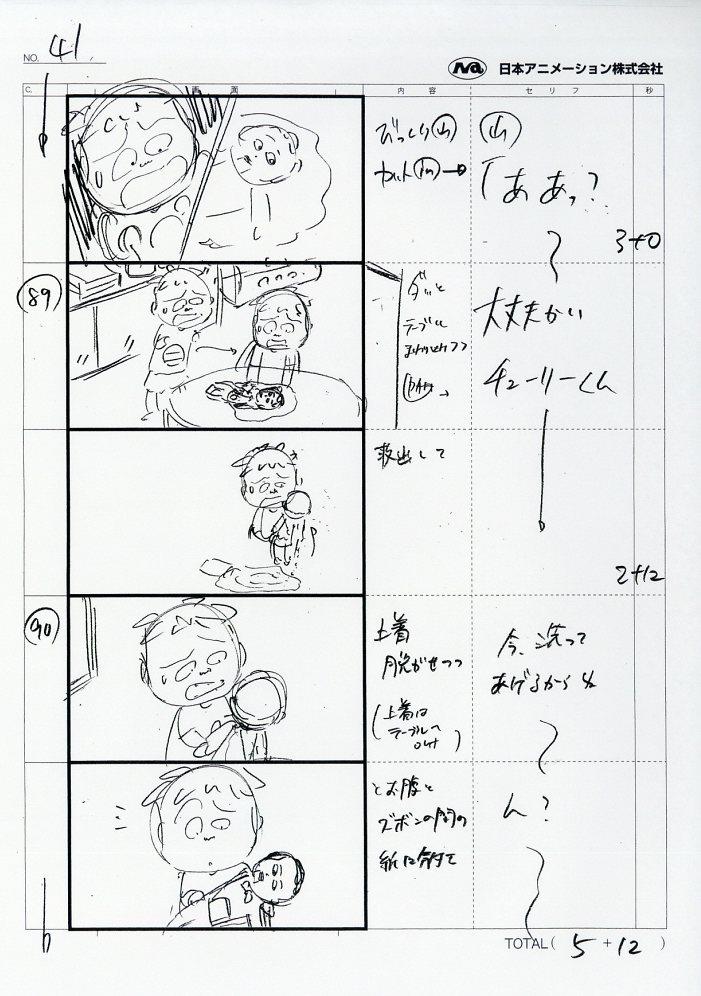 NO. 41
Na 日本アニメーション株式会社
C. 画面 内容 セリフ 秒
びっくり山
山
「ああっ?
3+0
89
ダッと
テーブルに
大丈夫かい
チューリーくん
救出して
2+12
90
上着
脱がせつつ
(上着は
テーブルへ
out)
今、洗って
あげるから
とお腹と
ズボンの間の
紙に気付て
ん?
TOTAL( 5 + 12 )